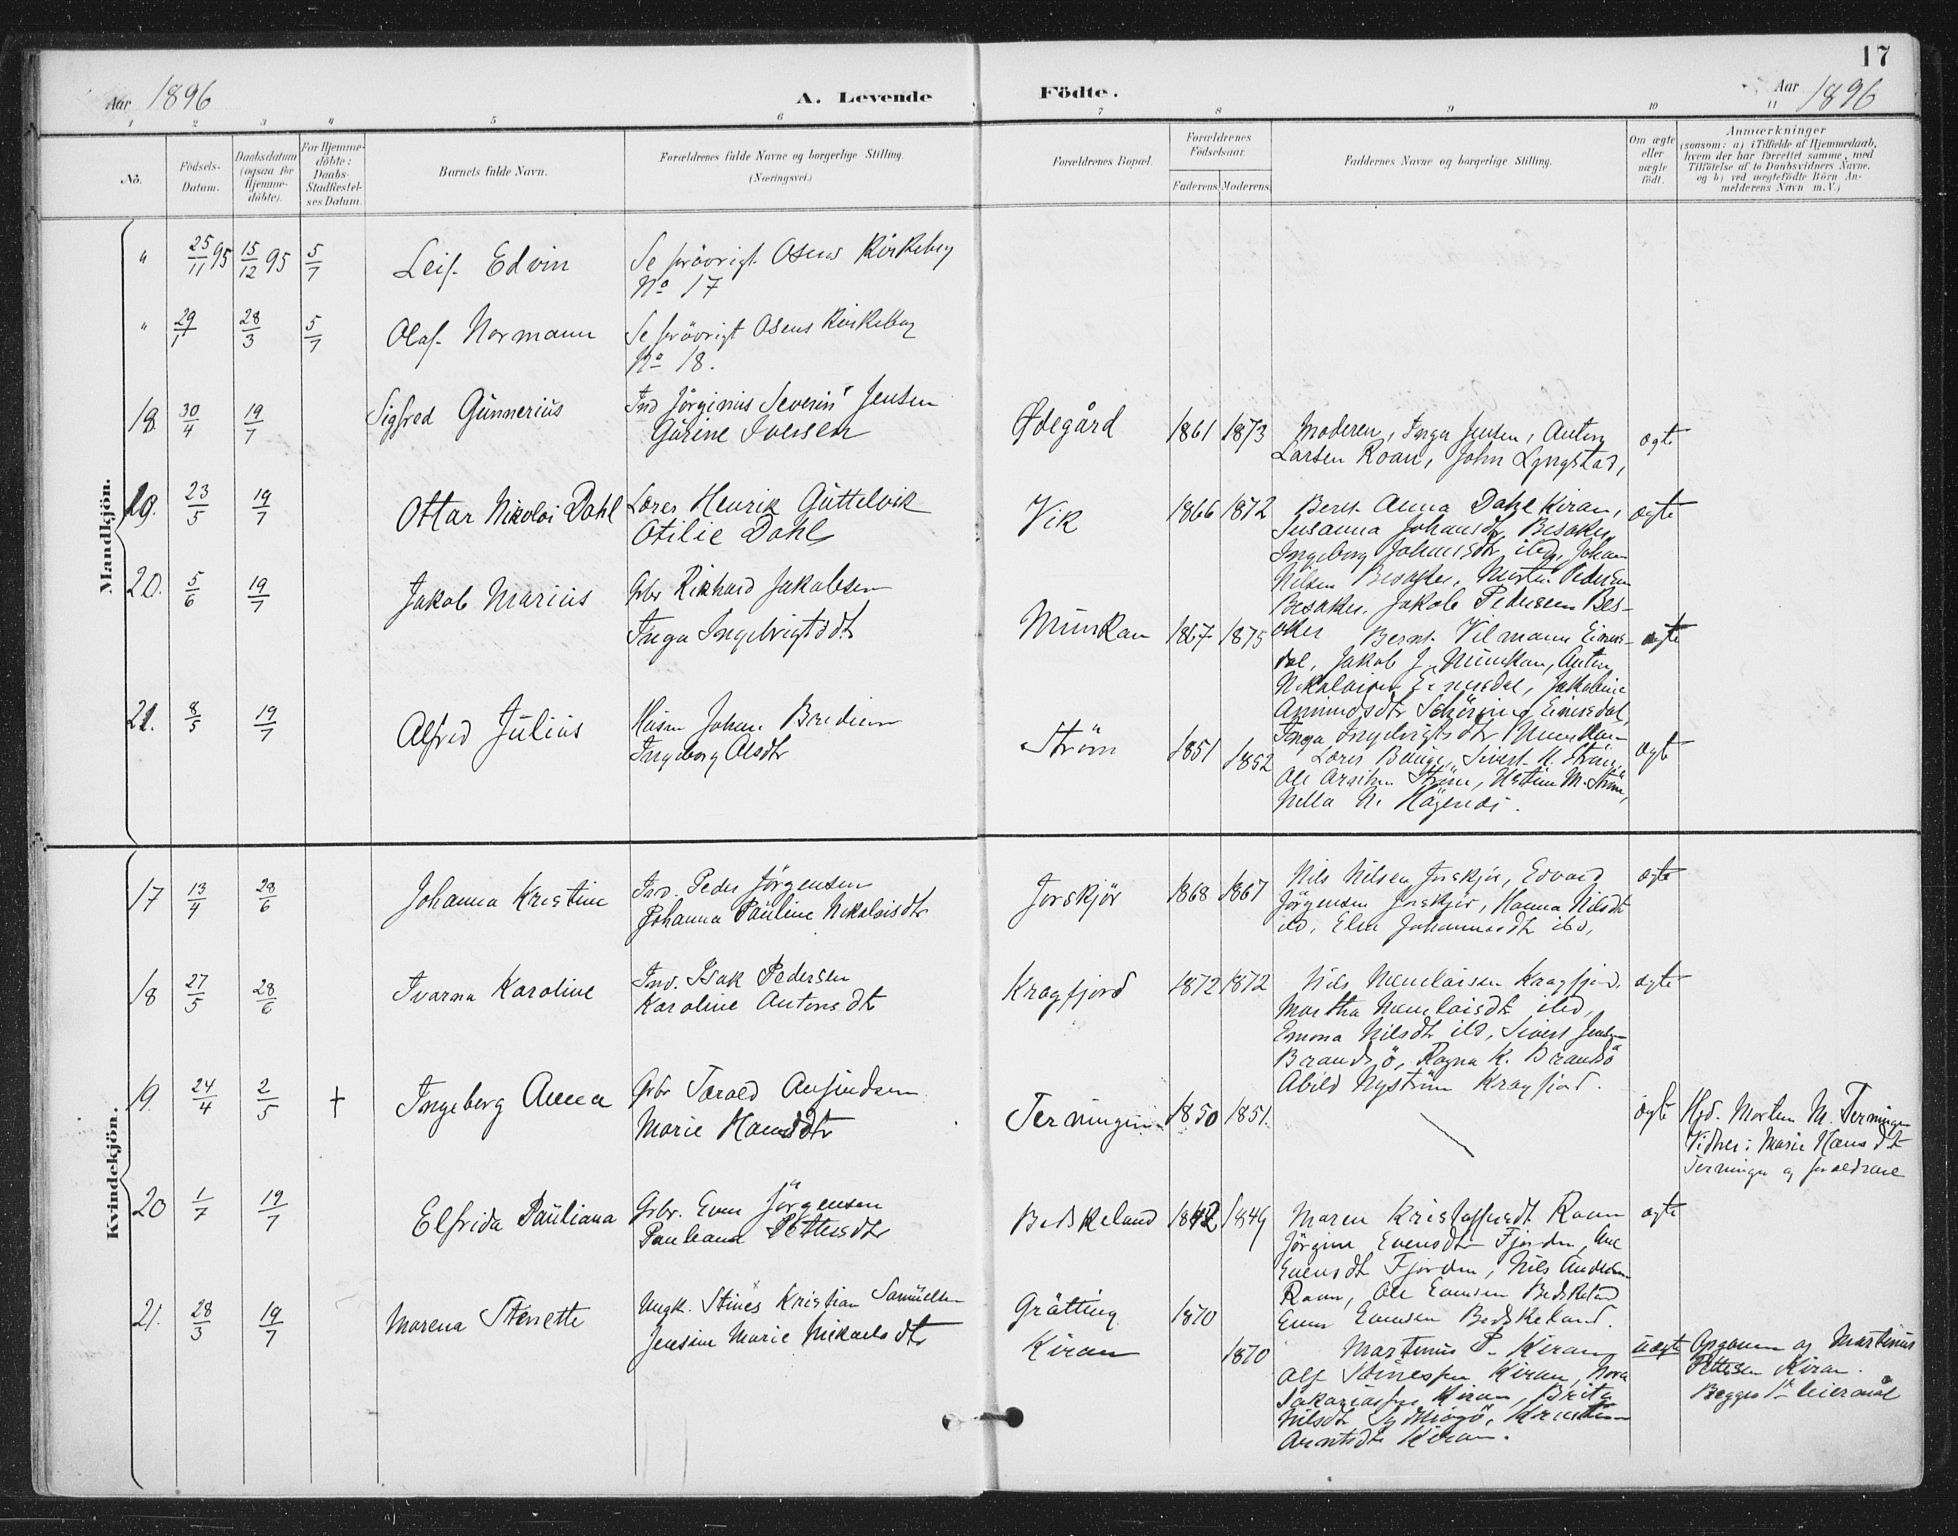 17
Aar 1896 A. Levende Födte. Aar 1896
1 2 3 4 5 6 7 8 9 10 11
No.
Födsels-Datum.
Daabsdatum (ogsaa for Hjemme-döbte).
For Hjemme-döbte: Daabs-Stadfæstel-ses Datum.
Barnets fulde Navn.
Forældrenes fulde Navne og borgerlige Stilling. (Næringsvei.)
Forældrenes Bopæl.
Forældrenes Födselsaar.
Faderens. Moderens.
Faddernes Navne og borgerlige Stilling.
Om ægte eller uægte födt.
Anmærkninger
(saasom: a) i Tilfælde af Hjemmedaab,
hvem der har forrettet samme, med
Tilföielse af to Daabsvidners Navne,
og b) ved uægtefödte Börn An-
melderens Navn m. V.)
Mandkjön.
" 25/11 95 15/12 95 5/7 Leif Edvin Se forövrigt Osens Kirkebog
No 17
" 29/1 28/3 5/7 Olaf Normann Se forövrigt Osens Kirkebog
No 18.
18 30/4 19/7 Sigfred Gunnerius Ind Jörginus Severin Jensen Ødegård 1861 1873 Moderen, Inga Jensen, Anton ægte
Gusine Iversen Larsen Roan, John Lyngstad,
19. 23/5 19/7 Ottar Nikolai Dahl Lærer Henrik Guttelvik Vik 1866 1872 Bernt Anna Dahl Kiran, ægte
Otilie Dahl Susanna Johansdt Besaker,
Ingeborg Johansdt ibd, Johan
Nilsen Besaker, Martin Pedersen
Besaker, Jakob Pedersen Bes-
aker
20. 5/6 19/7 Jakob Marius Gbr Rikhard Jakobsen Munkan 1867 1875 Bernt Vilmann Einars- ægte
Inga Ingebrigtsdt dal, Jakob J. Munkan, Anton
Nikolaisen Einarsdal, Jakobine
Amundsdt Einarsdal,
Inga Ingebrigtsdt Munkan
21. 8/5 19/7 Alfred Julius Husm Johan Ström 1851 1852 Lærer Sivert M. Ström, ægte
Ingeborg Olsdt Ole Ström, M. Ström,
Nella N.
Kvindekjön.
17 13/4 28/6 Johanna Kristine Ind. Peder Jörgensen Jorskjör 1868 1867 Nils Nilsen Jorskjör, Edvard ægte
Johanna Pauline Nikolaisdt Jörgensen Jorskjör, Hanna Nilsdt
ibd, Elen Johannesdt ibd,
18 27/5 28/6 Ivarna Karoline Ind. Isak Pedersen Kragfjord 1872 1872 Nils Kragfjord, ægte
Karoline Antonsdt Martha ibd,
Emma Nilsdt ibd, Sivert
Brandsö, Ragna K. Brandsö
Abild Nyström Kragfjord.
19. 24/4 2/5 + Ingeborg Anna Gbr Tarald Terningen 1850 1851. ægte Hjd. Morten M. Terningen
Marie Hansdt Vidner: Marie Hansdt
Terningen og forældrene
20 1/7 19/7 Elfrida Pauliana Gbr. Even Jörgensen Bedskeland 1842 1849 Maren Kristoffersdt Roan ægte
Pauliana Pettersdt Jörgine Evensdt Fjorden, Ane
Evensdt Fjorden, Nils Andersen
Roan, Ole Evensen Bedskeland
Even Evensen Bedskeland.
21. 28/3 19/7 Marena Stenette Ungk. Stines Kristian Samuelsen Grötting 1870
Jensine Marie Mikaelsdt Kiran 1870 Martinus P. Kiran, uægte Opgaven og Martinus
Kiran, Nora Pettersen Kiran.
Sakariasen Kiran, Berita Begges 1ste leiermål
Nilsdt
Arntsdt Kiran.